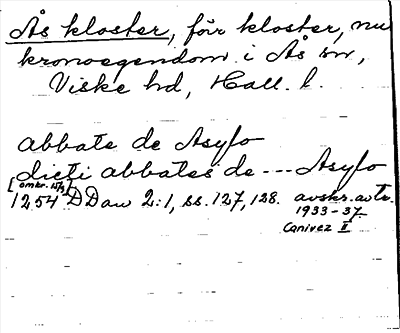 Ås kloster, förr kloster, nu
kronoegendom i Ås sn,
Viske hd, Hall. l.
abbate de Asylo
dicti abbates de --- Asylo
[omkr. 1519]
1254 DDan 2:1, ss. 127, 128. avskr. avtr.
1933-37
Canivez II